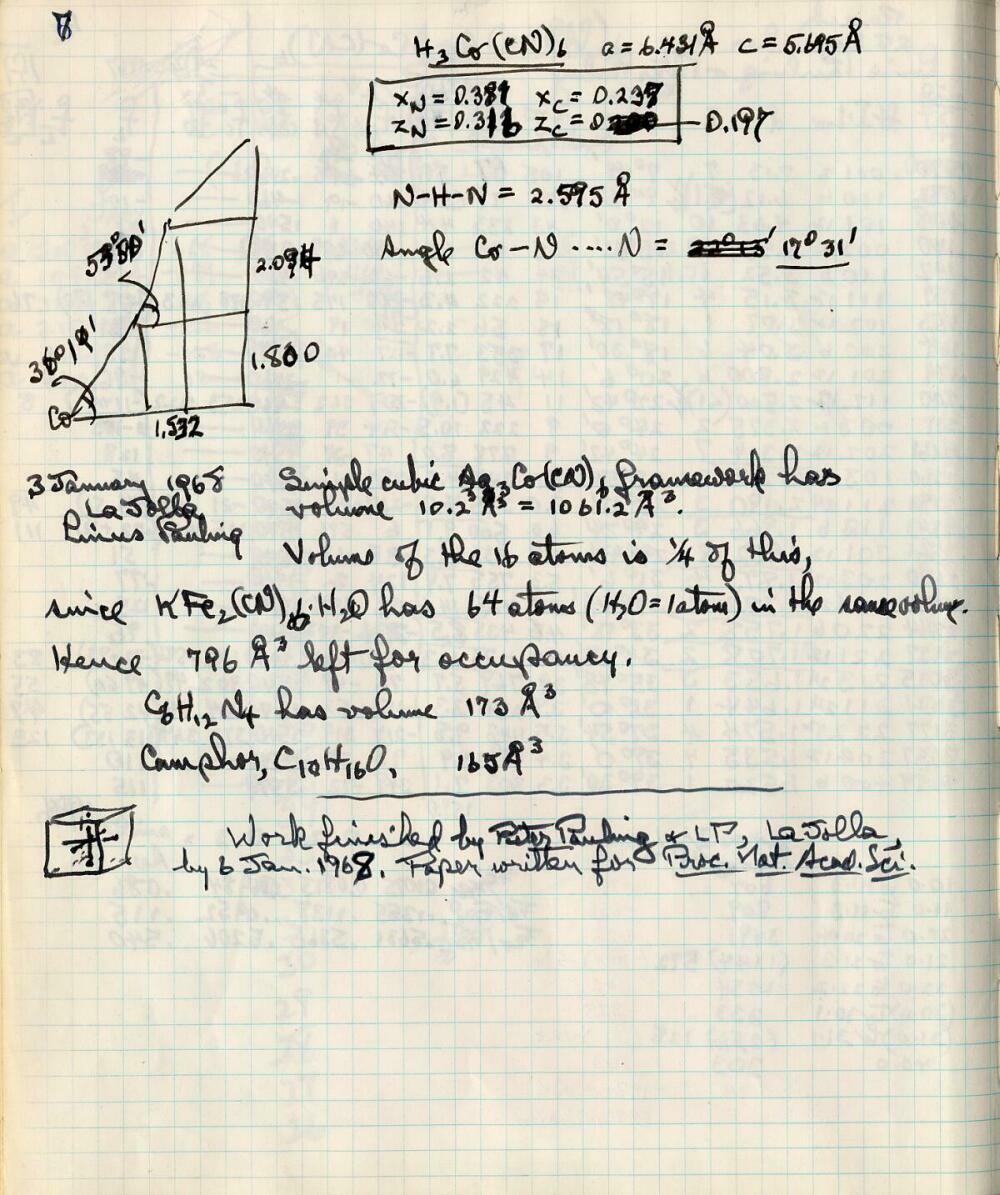 H₃Co(CN)₆ a = 6.431Å c = 5.695Å
x_N = 0.389 x_C = 0.238
z_N = 0.316 z_C = 0.197
N-H-N = 2.595 Å
Angle Co-N ....N = 17° 31'
2.094
1.800
Co
1.532
3 January 1968
La Jolla
Linus Pauling
Simple cubic Ag₃Co(CN)₆ framework has
volume 10.2³Å³ = 1061.2Å³.
Volume of the 16 atoms is ¼ of this,
since KFe₂(CN)₆·H₂O has 64 atoms (H₂O = 1 atom) in the same volume.
Hence 796 Å³ left for occupancy.
C₆H₁₂N₄ has volume 173 Å³
Camphor, C₁₀H₁₆O, 165Å³
Work finished by Peter Pauling & LP, La Jolla,
by 6 Jan. 1968. Paper written for Proc. Nat. Acad. Sci.